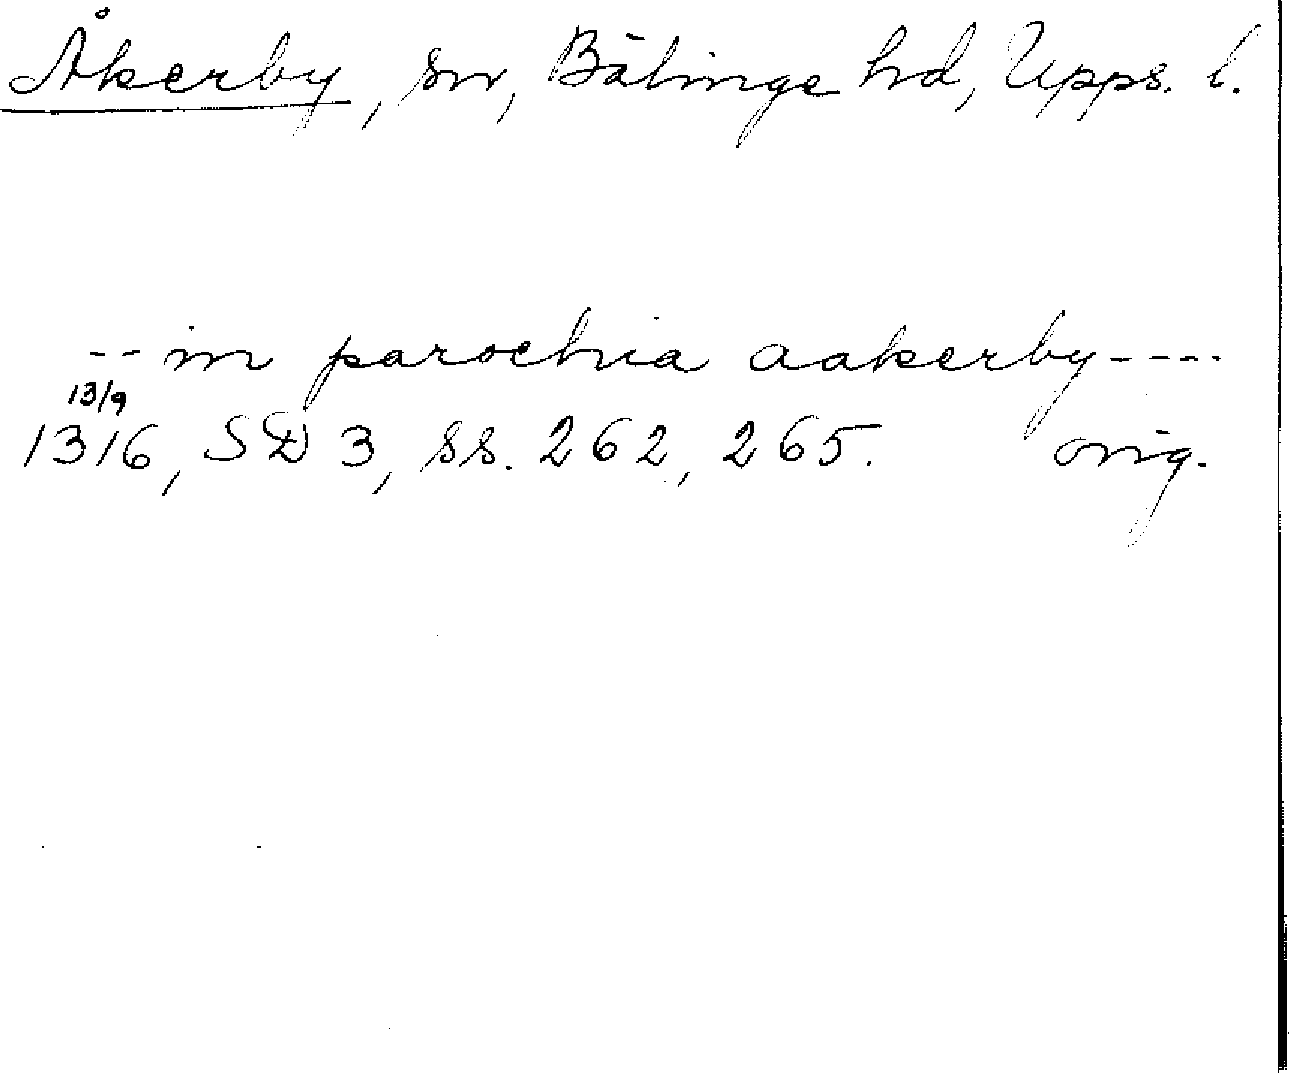 Åkerby, sn, Bälinge hd, Upps. l.
-- in parochia aakerby ----
13/9
1316, SD 3, ss. 262, 265. orig.